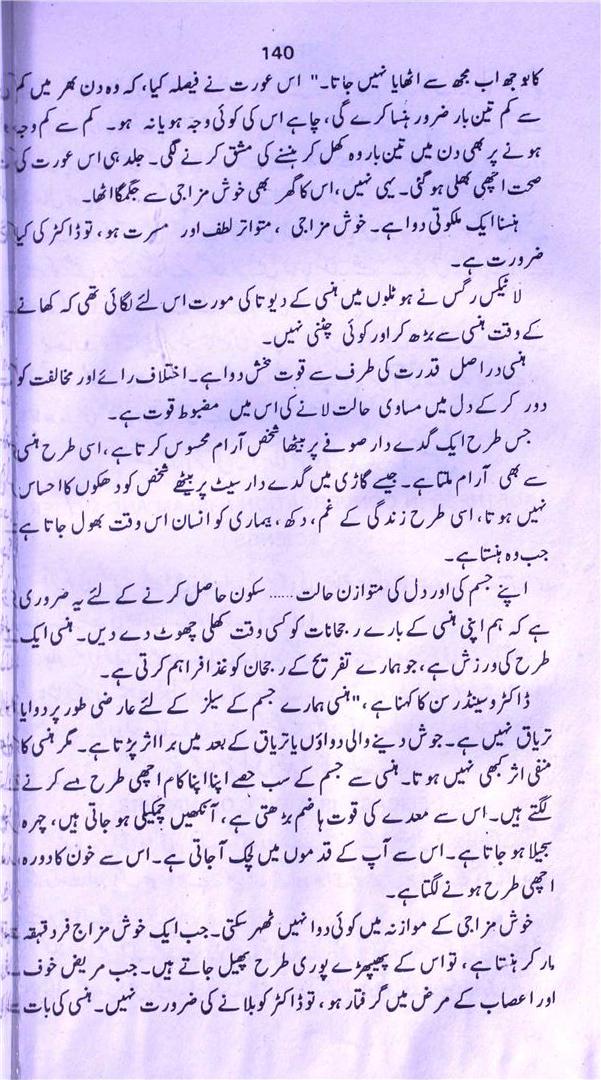 140
کا بوجھ اب مجھ سے اٹھایا نہیں جاتا۔" اس عورت نے فیصلہ کیا، کہ وہ دن بھر میں کم
سے کم تین بار ضرور ہنسا کرے گی، چاہے اس کی کوئی وجہ ہو یا نہ ہو۔ کم سے کم وجہ
ہونے پر بھی دن میں تین بار وہ کھل کر ہنسنے کی مشق کرنے لگی۔ جلد ہی اس عورت کی
صحت اچھی بھلی ہو گئی۔ یہی نہیں، اس کا گھر بھی خوش مزاجی سے جگمگا اٹھا۔
ہنسنا ایک ملکوتی دوا ہے۔ خوش مزاجی ، متواتر لطف اور مسرت ہو، تو ڈاکٹر کی کیا
ضرورت ہے۔
لائیکس رگس نے ہوٹلوں میں ہنسی کے دیوتا کی مورت اس لئے لگائی تھی کہ کھانے
کے وقت ہنسی سے بڑھ کر اور کوئی چٹنی نہیں۔
ہنسی دراصل قدرت کی طرف سے قوت بخش دوا ہے۔ اختلاف رائے اور مخالفت کو
دور کر کے دل میں مساوی حالت لانے کی اس میں مضبوط قوت ہے۔
جس طرح ایک گدے دار صوفے پر بیٹھا شخص آرام محسوس کرتا ہے، اسی طرح ہنسی
سے بھی آرام ملتا ہے۔ جیسے گاڑی میں گدے دار سیٹ پر بیٹھے شخص کو دھکوں کا احساس
نہیں ہوتا، اسی طرح زندگی کے غم، دکھ، بیماری کو انسان اس وقت بھول جاتا ہے
جب وہ ہنستا ہے۔
اپنے جسم کی اور دل کی متوازن حالت ..... سکون حاصل کرنے کے لئے یہ ضروری
ہے کہ ہم اپنی ہنسی کے بارے رجحانات کو کسی وقت کھلی چھوٹ دے دیں۔ ہنسی ایک
طرح کی ورزش ہے، جو ہمارے تفریح کے رجحان کو غذا فراہم کرتی ہے۔
ڈاکٹر وسینڈرسن کا کہنا ہے، "ہنسی ہمارے جسم کے سیلز کے لئے عارضی طور پر دوا یا
تریاق نہیں ہے۔ جوش دینے والی دواؤں یا تریاق کے بعد میں برا اثر پڑتا ہے۔ مگر ہنسی کا
منفی اثر کبھی نہیں ہوتا۔ ہنسی سے جسم کے سب حصے اپنا اپنا کام اچھی طرح سے کرنے
لگتے ہیں۔ اس سے معدے کی قوت ہاضم بڑھتی ہے، آنکھیں چمکیلی ہو جاتی ہیں، چہرہ
سجیلا ہو جاتا ہے۔ اس سے آپ کے قدموں میں لچک آ جاتی ہے۔ اس سے خون کا دورہ
اچھی طرح ہونے لگتا ہے۔
خوش مزاجی کے موازنہ میں کوئی دوا نہیں ٹھہر سکتی۔ جب ایک خوش مزاج فرد قہقہہ
مار کر ہنستا ہے، تو اس کے پھیپھڑے پوری طرح پھیل جاتے ہیں۔ جب مریض خوف
اور اعصاب کے مرض میں گرفتار ہو، تو ڈاکٹر کو بلانے کی ضرورت نہیں۔ ہنسی کی بات